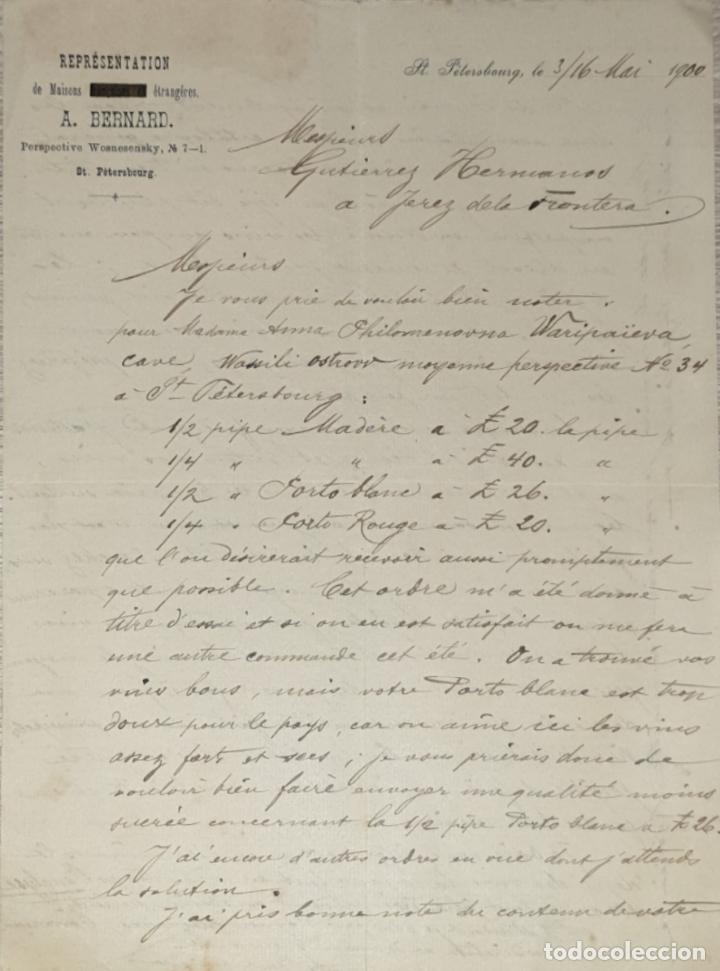 REPRÉSENTATION
de Maisons étrangères.
A. BERNARD.
Perspective Wosnesensky, № 7—1.
St. Pétersbourg.
St. Pétersbourg, le 3/16 Mai 1900
Messieurs
Gutierrez Hermanos
à Jerez de la Frontera.
Messieurs
Je vous prie de vouloir bien noter
pour Madame Anna Philomenovna Waripaïeva,
cave, Wassili ostrow moyenne perspective No 34
à St. Pétersbourg :
1/2 pipe Madère à £ 20. la pipe
1/4 " " à £ 40. "
1/2 " Porto blanc à £ 26. "
1/4 " Porto Rouge à £ 20. "
que l'on désirerait recevoir aussi promptement
que possible. Cet ordre m'a été donné à
titre d'essai et si on en est satisfait on me fera
une autre commande cet été. On a trouvé vos
vins bons, mais votre Porto blanc est trop
doux pour le pays, car on aime ici les vins
assez forts et secs ; je vous prierais donc de
vouloir bien faire envoyer une qualité moins
sucrée concernant la 1/2 pipe Porto blanc à £ 26.
J'ai encore d'autres ordres en vue dont j'attends
la solution.
J'ai pris bonne note du contenu de votre
todocoleccion